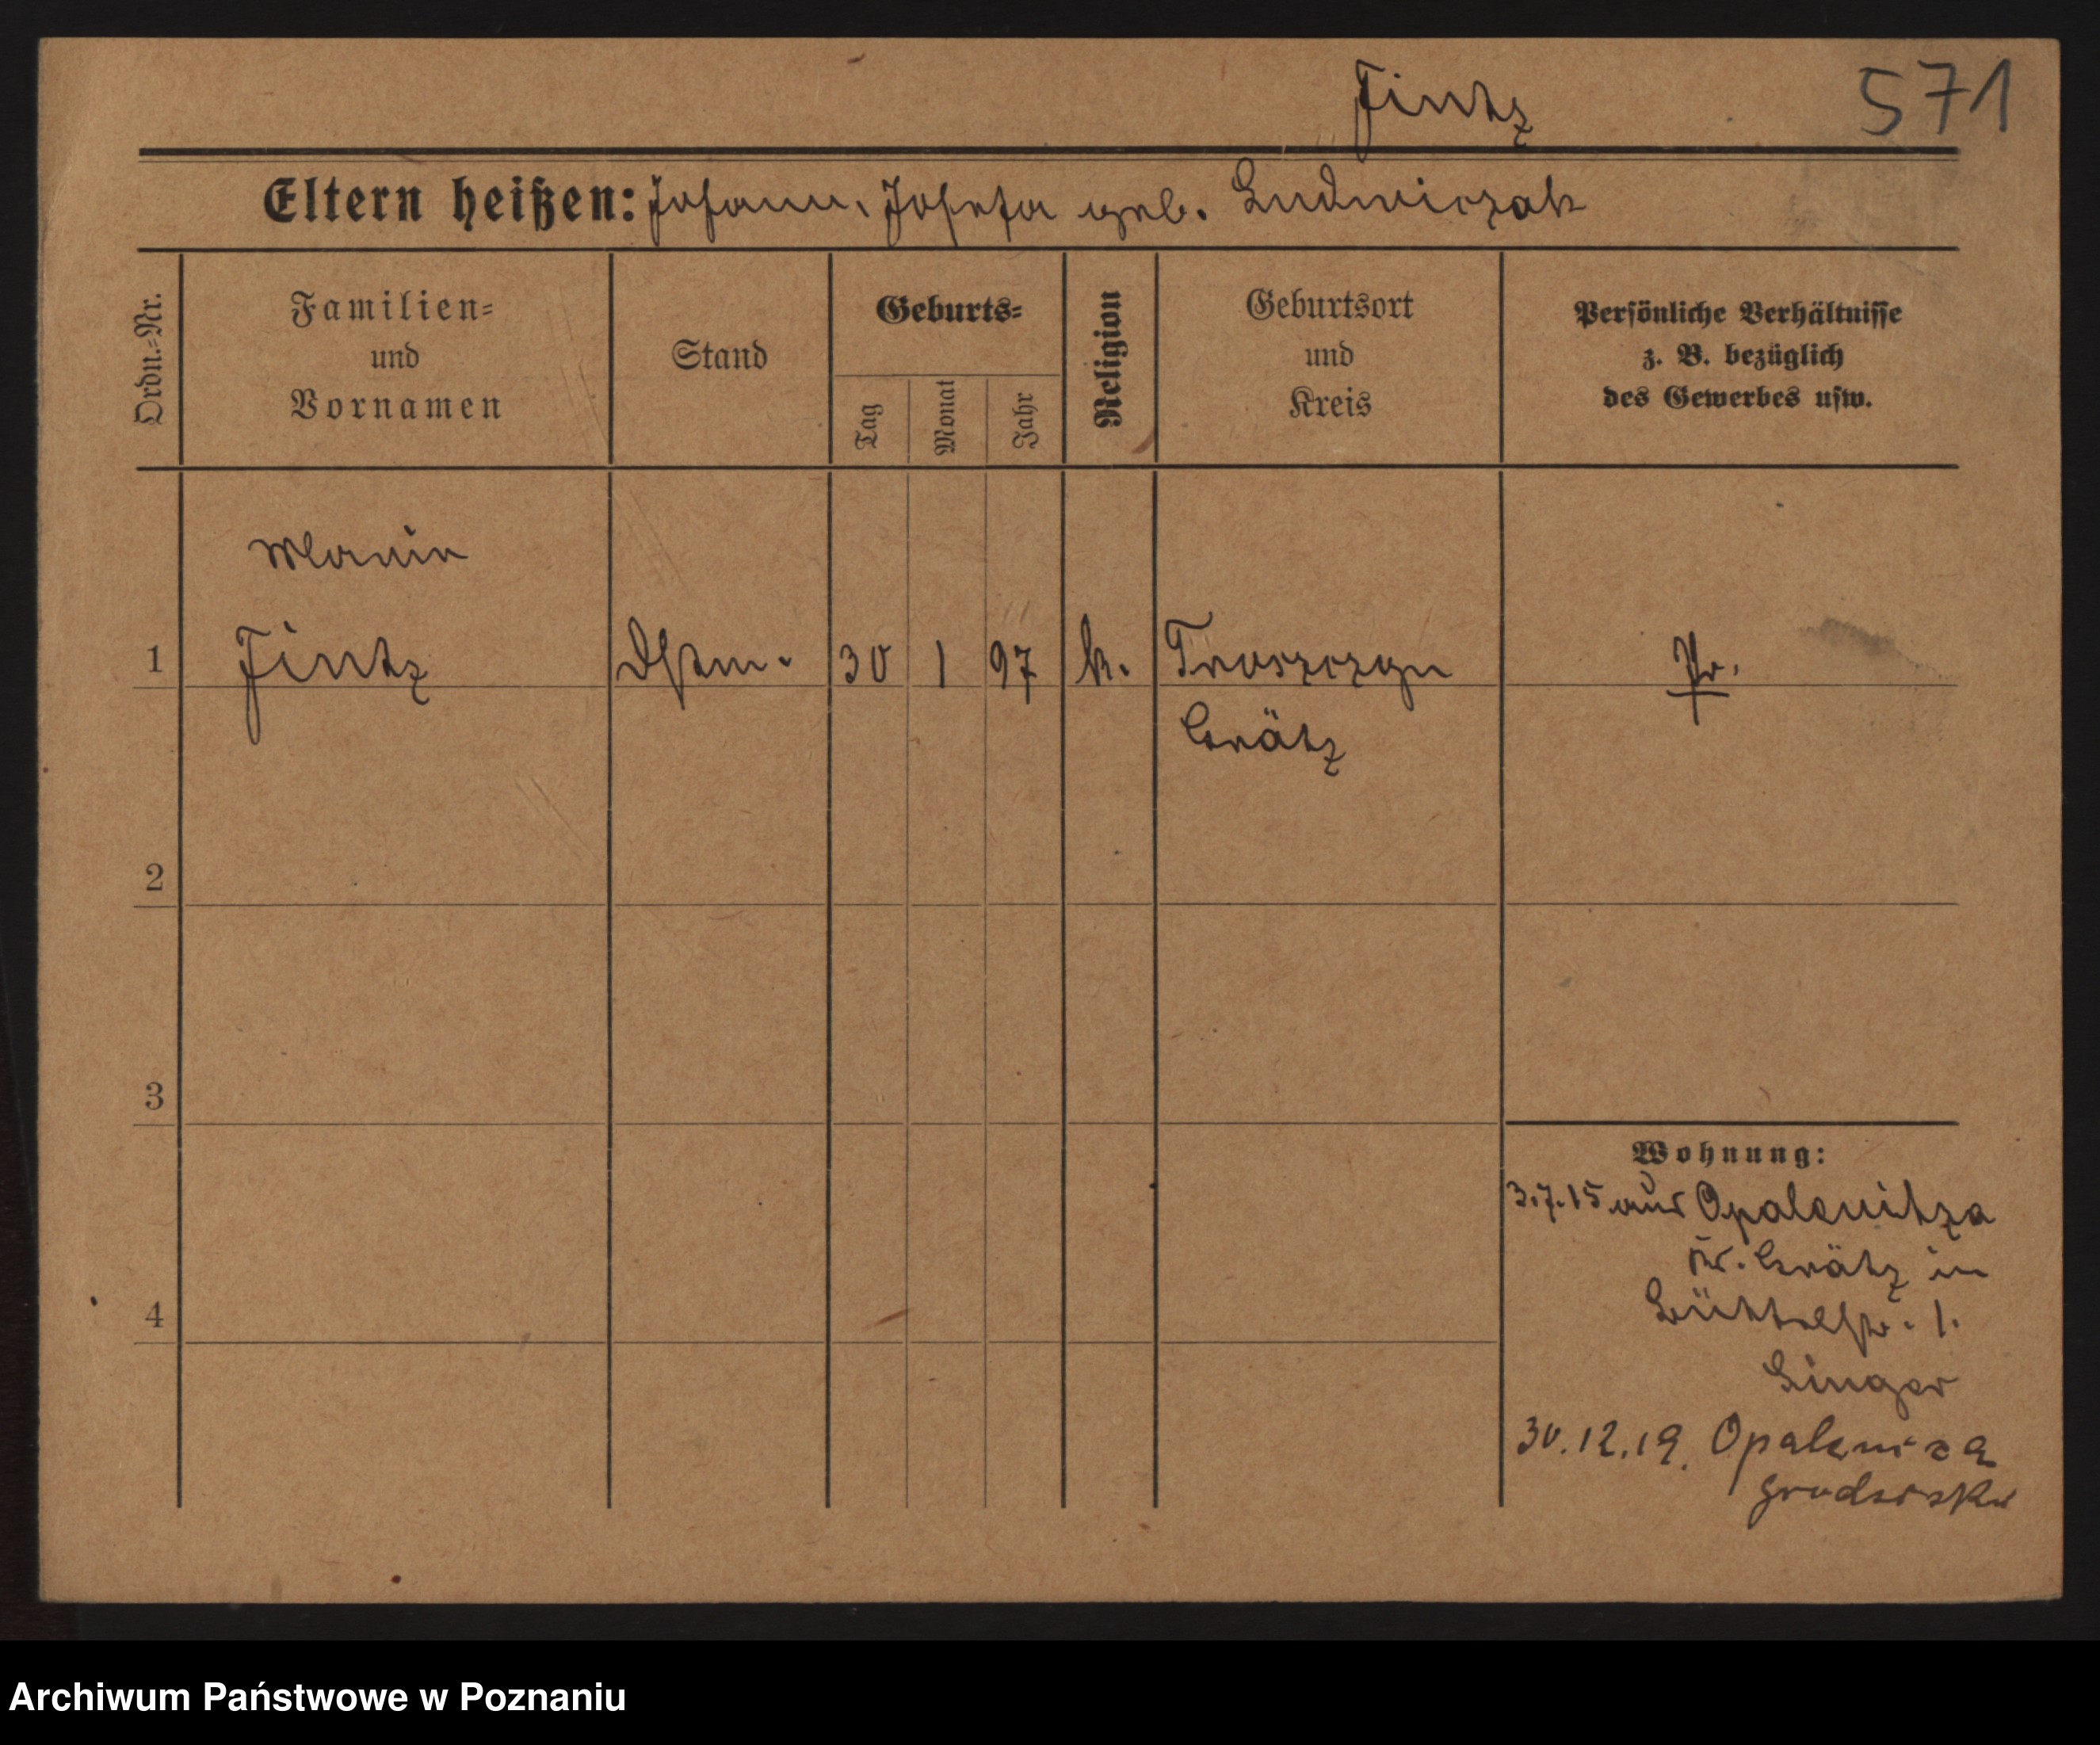 Jintz
571
Eltern heißen: Johann, Josefa geb. Ludwiczak
Ordn.-Nr.
Familien-
und
Vornamen
Stand
Geburts-
Tag
Monat
Jahr
Religion
Geburtsort
und
Kreis
Persönliche Verhältnisse
z. B. bezüglich
des Gewerbes usw.
Maria
1 Jintz Dstm. 30 1 97 k. Troszczyn Pr.
Grätz
2
3
4
Wohnung:
3.7.15 aus Opalenitza
Kr. Grätz in
Büttelstr. 1.
Singer
30.12.19. Opalenica
Archiwum Państwowe w Poznaniu